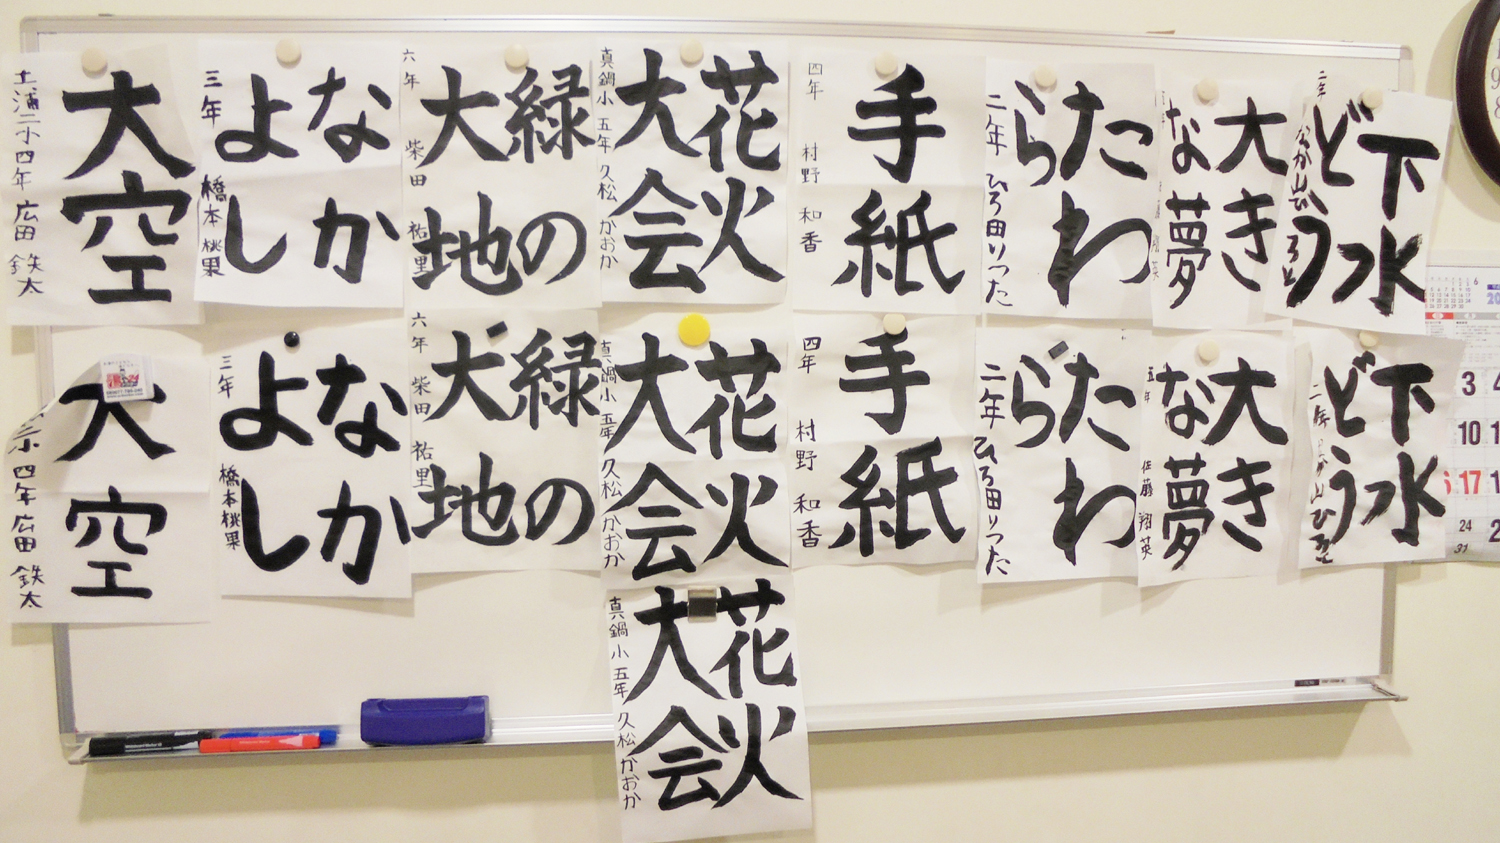 下水
どう
二年
大き
な夢
たわ
らた
二年 ひろ田りつた
手紙
四年 村野 和香
花火
大会
真鍋小 五年 久松 かおか
緑の
大地
六年 柴田 祐里
なか
よし
三年 橋本 桃果
大空
土浦二小四年 広田 鉄太
下水
どう
大き
な夢
五年 佐藤 翔英
たわ
ら
二年 ひろ田りつた
手紙
四年 村野 和香
花火
大会
真鍋小 五年 久松 かおか
緑の
大地
六年 柴田 祐里
なか
よし
三年 橋本桃果
大空
小四年 広田 鉄太
花火
大会
真鍋小 五年 久松 かおか
3
10
17
24
31